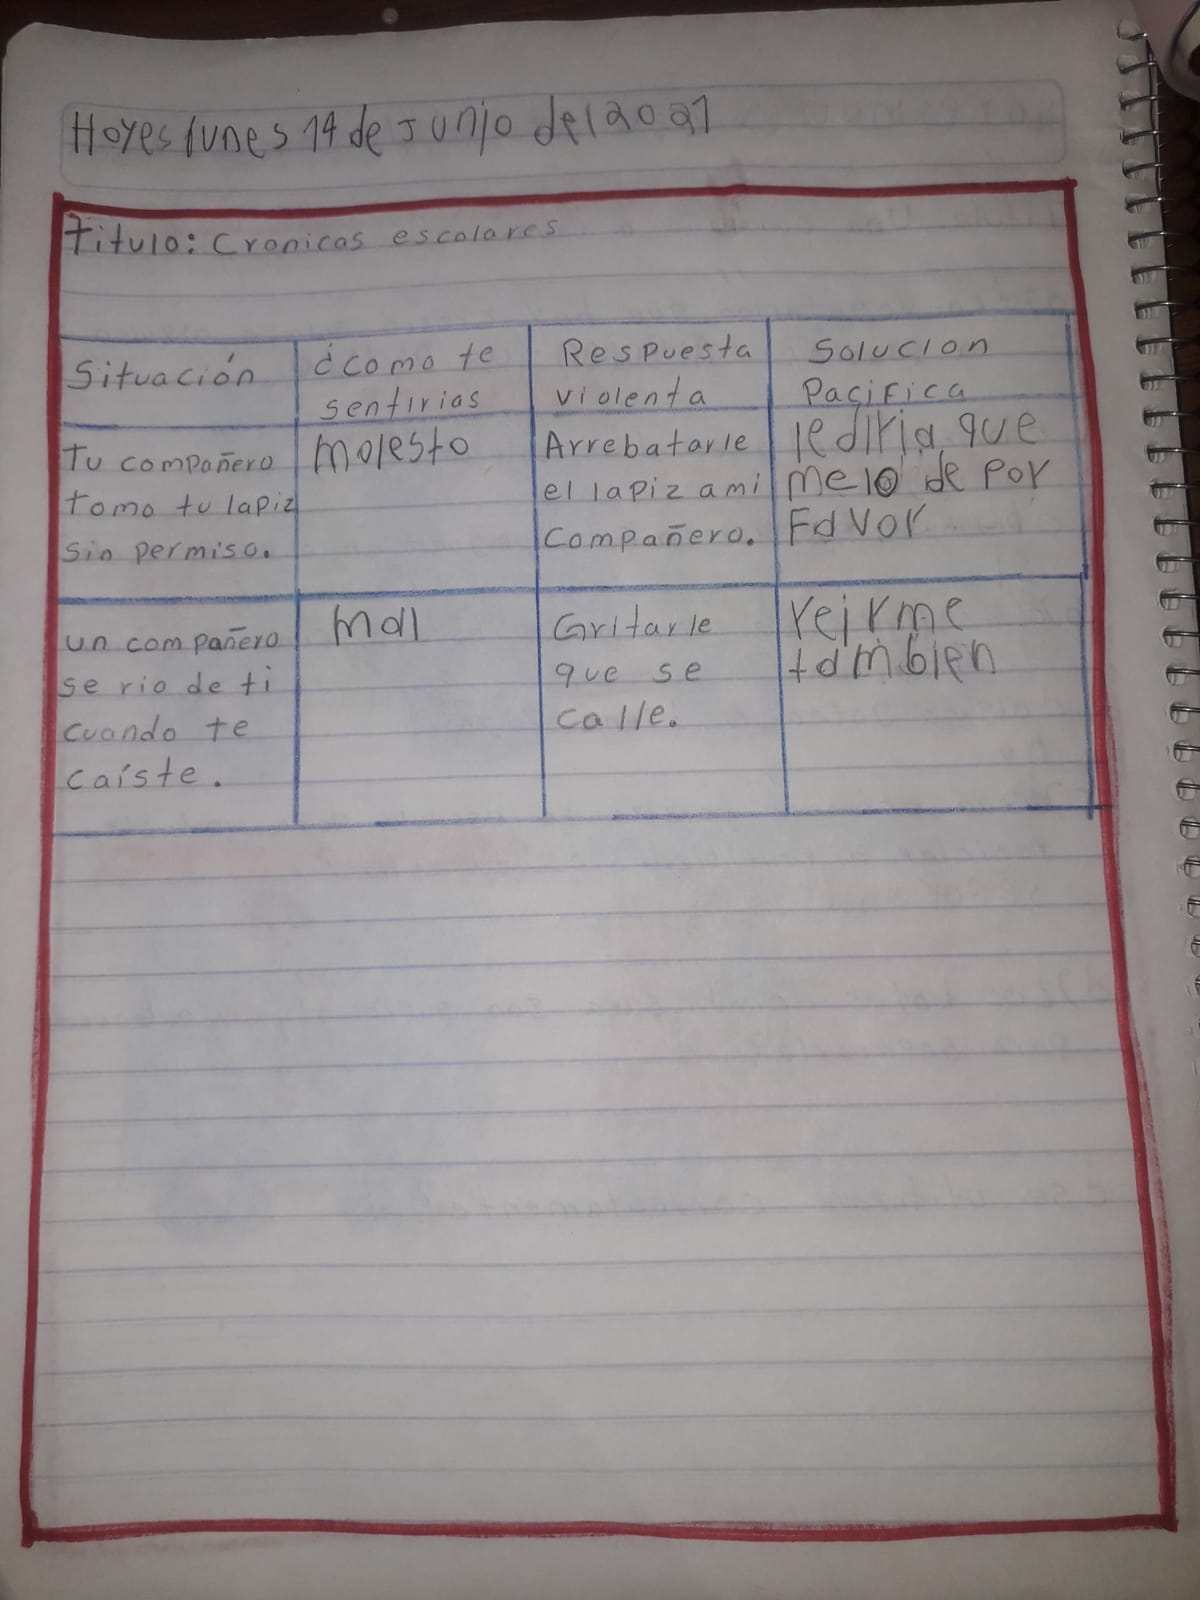 Hoyes lunes 14 de Junio del 2021
Titulo: Cronicas escolares
Situación
¿como te
sentirias
Respuesta
violenta
Solucion
Pacifica
Tu compañero
tomo tu lapiz
sin permiso.
molesto
Arrebatarle
el lapiz a mi
Compañero.
lediria que
melo de por
Favor
un compañero
se rio de ti
cuando te
caíste.
mal
Gritarle
que se
calle.
reirme
tambien